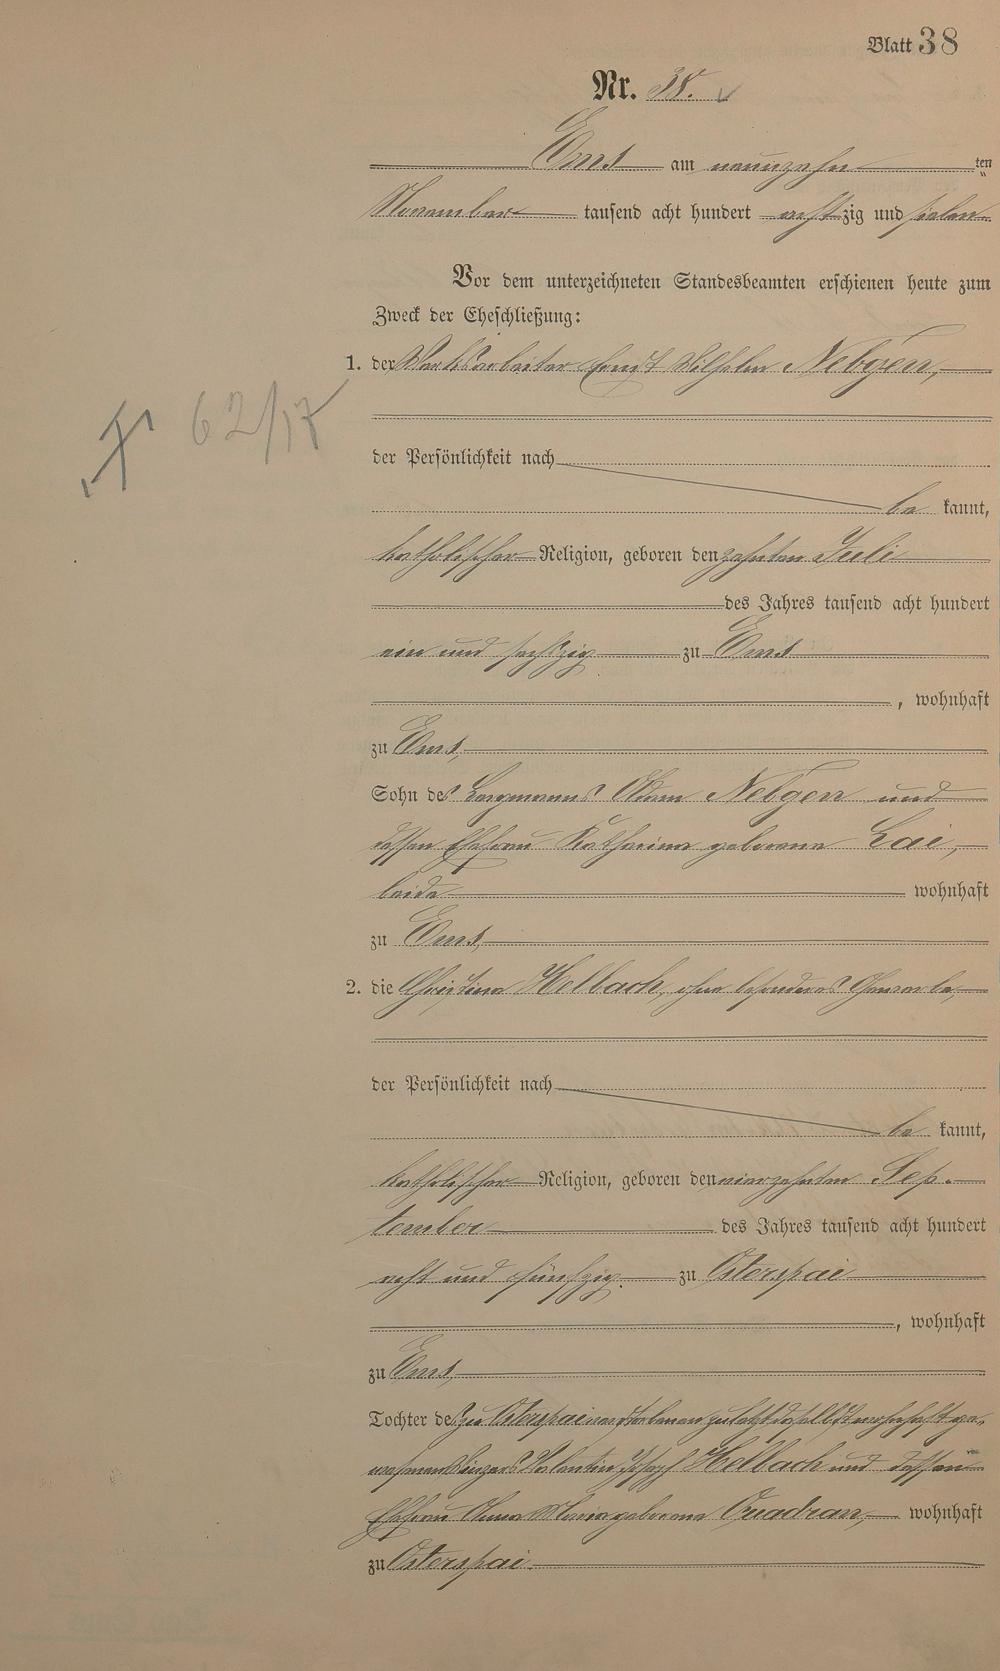 Blatt 38
Nr. 38.
Ems am neunzehn ten
November tausend acht hundert achtzig und sieben.
Vor dem unterzeichneten Standesbeamten erschienen heute zum
Zweck der Eheschließung:
1. der Werksarbeiter Ernst Wilhelm Nebgen,
62/17
der Persönlichkeit nach
be kannt,
katholischer Religion, geboren den zehnten Juli
des Jahres tausend acht hundert
ein und sechszig zu Ems
, wohnhaft
zu Ems,
Sohn des Bergmanns Nebgen und
dessen Ehefrau Katharina geborene Lai,
beide wohnhaft
zu Ems,
2. die Christina Helbach, ohne besonderes Gewerbe,
der Persönlichkeit nach
be kannt,
katholischer Religion, geboren den vierzehnten Sep-
tember des Jahres tausend acht hundert
acht und fünfzig zu Osterspai
, wohnhaft
zu Ems,
Tochter des zu Osterspai verstorbenen zuletzt daselbst wohnhaft ge-
wesenen Winzers Valentin Joseph Helbach und dessen
Ehefrau Anna Maria geborene Quadran, wohnhaft
zu Osterspai.